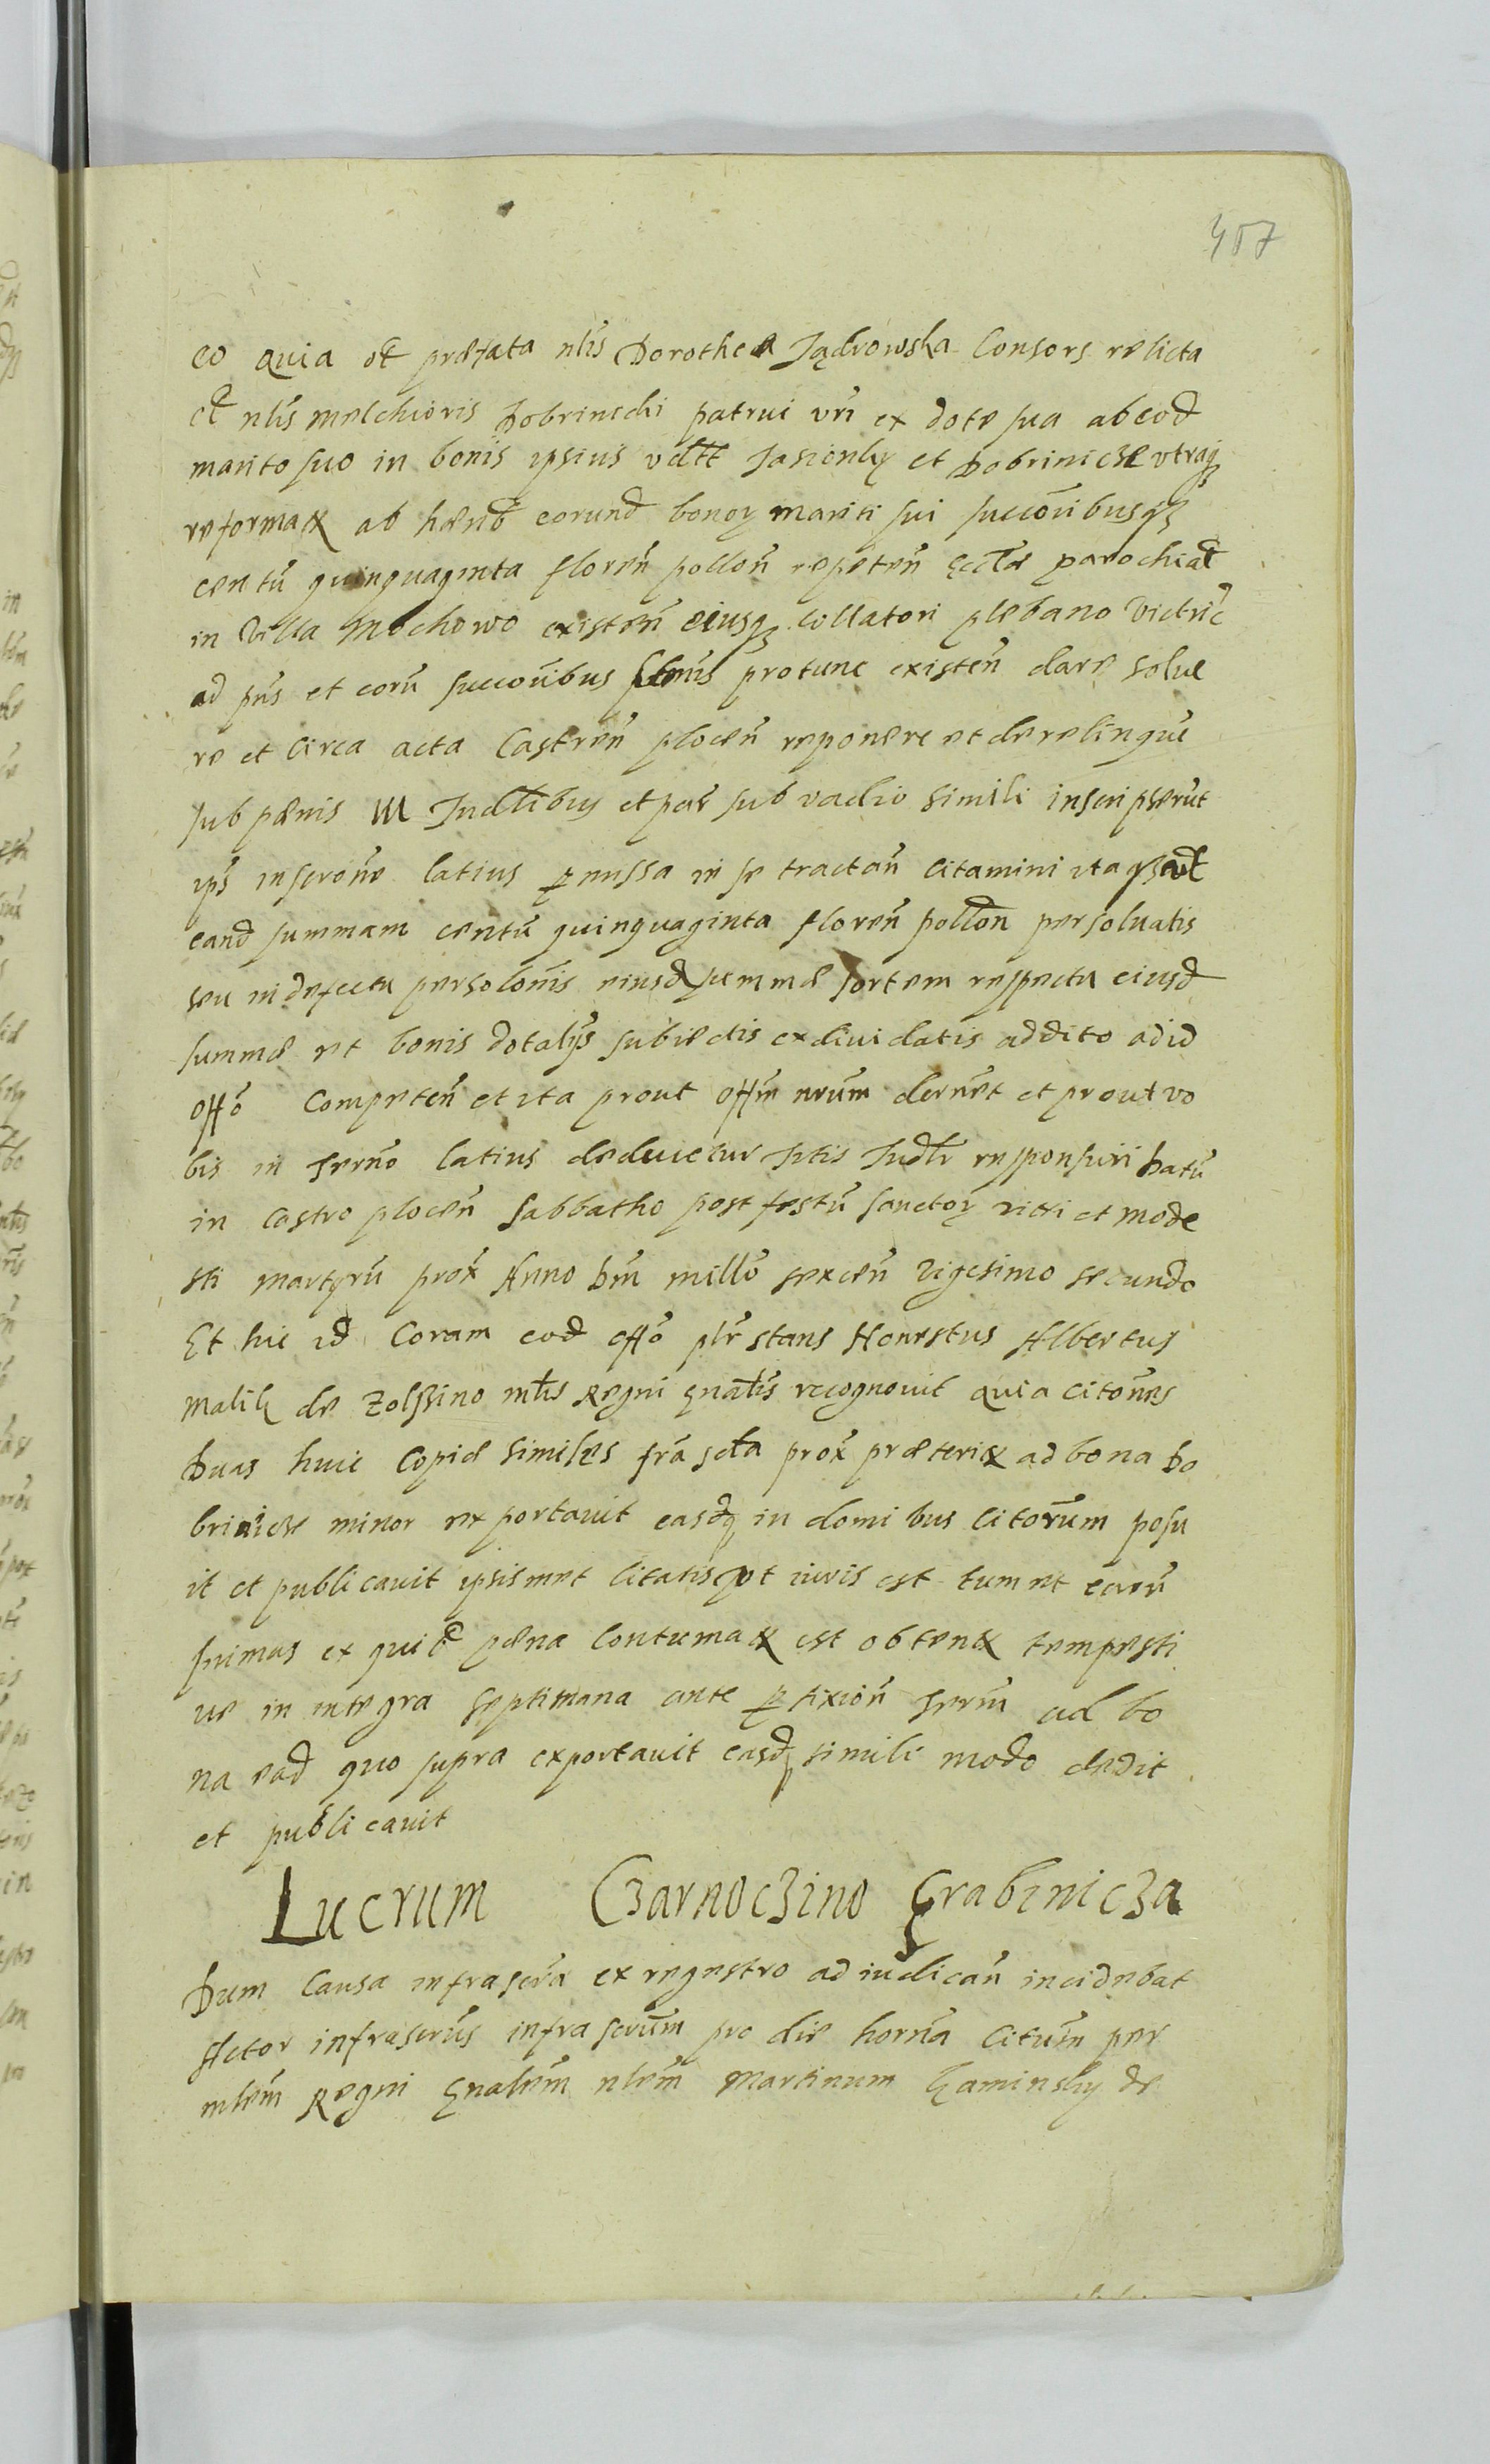 457
eo quia ol̃ præfata nlĩs Dorothea Jądrowska Consors relicta
ol̃ nlĩs Melchioris Dobrinicki patrui vrĩ ex dote sua ab eod̃
marito suo in bonis ipsius vdltt Jasionky et Dobrinicze utraq
reformat ab hæred̃ eorund̃ bonoꝝ mariti sui succoribusqȝ
centũ quinquaginta floren̄ pollon̄ repeten̄ Ecclæ parochial
in Villa Mochowo existen̄ eiusqȝ Collatori plebano
ad pns̃ et eorũ succoribus protunc existen̄ dare solue
re et circa acta Castren̄ plocen̄ reponere et derelinque
sub pænis III Judlibus et par̃ sub vadio simili inscripserũt
ips̃ inscrone latius præmissa in se tractan̄ Citamini itaqȝ
eand̃ summam centũ quinquaginta floren̄ pollon̄ persoluatis
seu in defectu persolonis eiusd̃ summæ sortem respectu eiusd̃
summæ et bonis dotalijs subiectis exdiuidatis addito ad id
offo competen̄ et ita prout offm̃ nrũm decrnet et prout vo
bis in termo latius deducetur Sitis Judlr responsuri Datũ
in Castro plocen̄ Sabbatho post festũ sanctoꝝ Viti et Mode
sti martyrũ prox̃ Anno Dm̃ millo sexcen̄ Vigesimo secundo
Et hic id̃ Coram eod̃ offo plr̃ stans Honestus Albertus
Malik de Zolszino mlis Regni gnãlis recognouit quia citones
Duas huic Copiæ similes frã scda prox̃ præterit ad bona Do
brinicze minor exportauit easdq̃ in domibus Citorum posu
it et publicauit ipsismet Citatis vt iuris est tum et earũ
primas ex quibȝ pæna Contumat est obtent tempesti
ue in integra septimana ante præfixion̄ termi ad bo
na ead̃ quo supra exportauit easdq̃ simili modo dedit
et publicauit
Lucrum Czarnoczino Grabinicza
Dum Causa infrascra ex regestro ad iudican̄ incidebat
Actor infrascrus infrascrum pro die horna Citum per
mlem Regni gnalem nlem Martinum Kaminsky de